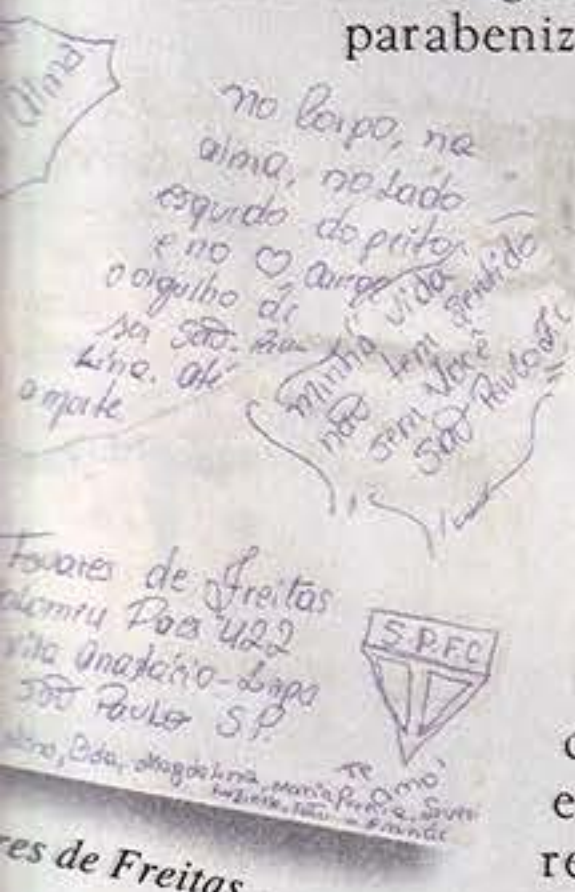 parabeniz
alma
no corpo, na
alma, no lado
esquerdo do peito
e no ♡, carrego
o orgulho de
ser São-Pau
lina. até
a morte
minha vida
não tem sentido
sem você
São Paulo F.C
Tavares de Freitas
Paes 422
Vila Anastácio-Lapa
São Paulo SP.
S.P.F.C
Te amo
Magdalena, Maria
res de Freitas
e
re